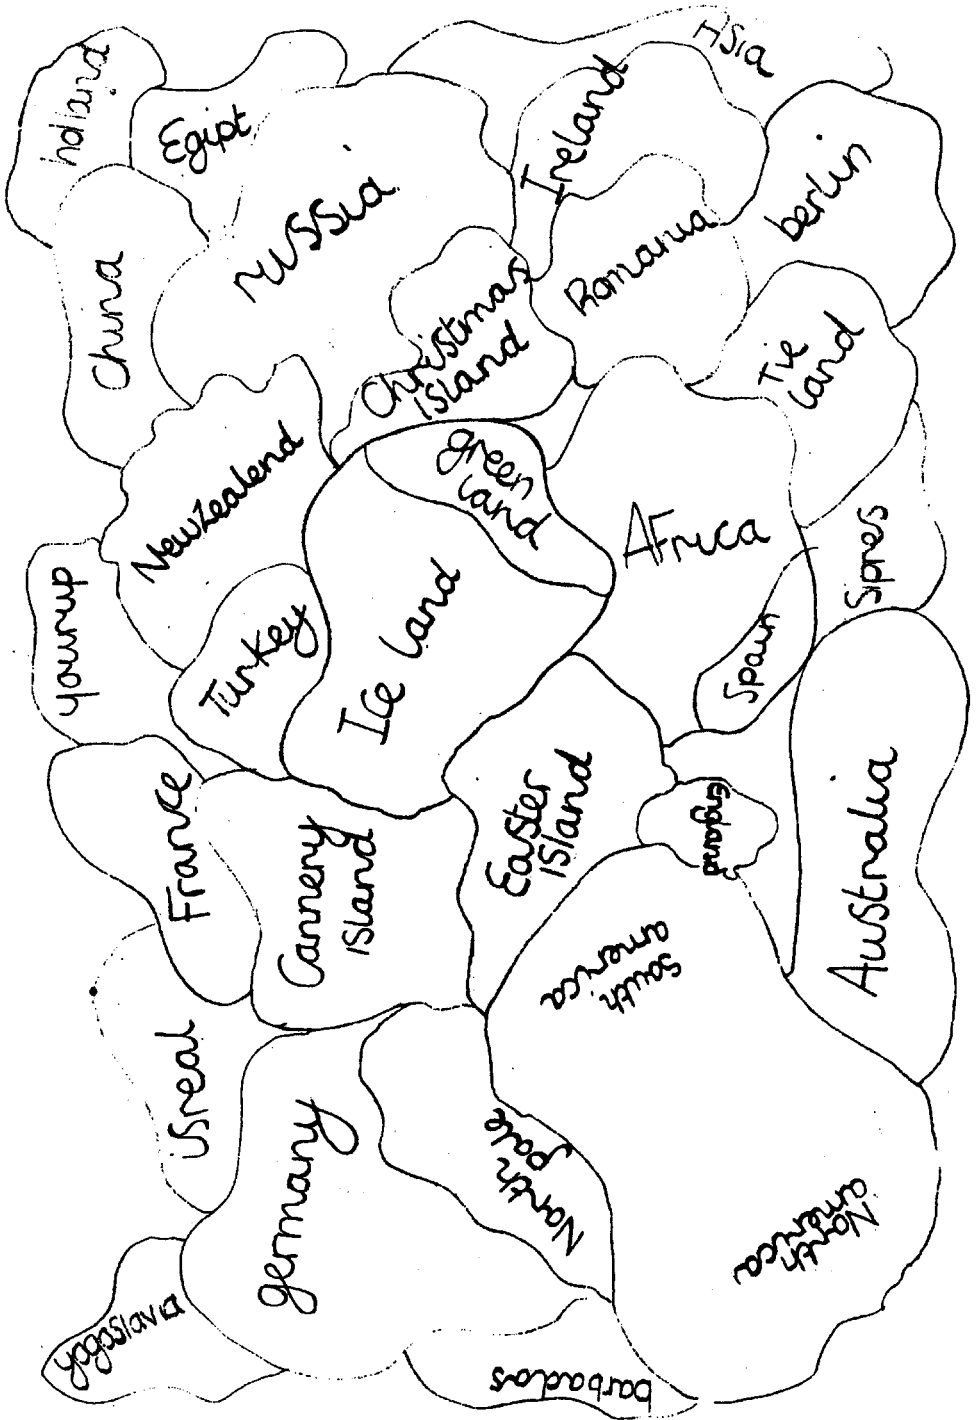 Asia
hdiand
Egipt
Ireland
berlin
russia
China
Romania
Christmas
island
Tie
land
New Zealend
green
land
Africa
Sipres
yourup
Turkey
Ice land
Spain
France
Cannery
island
Easter
island
England
Australia
South
america
isreal
germany
North
pole
North
america
yogoslavia
barbados